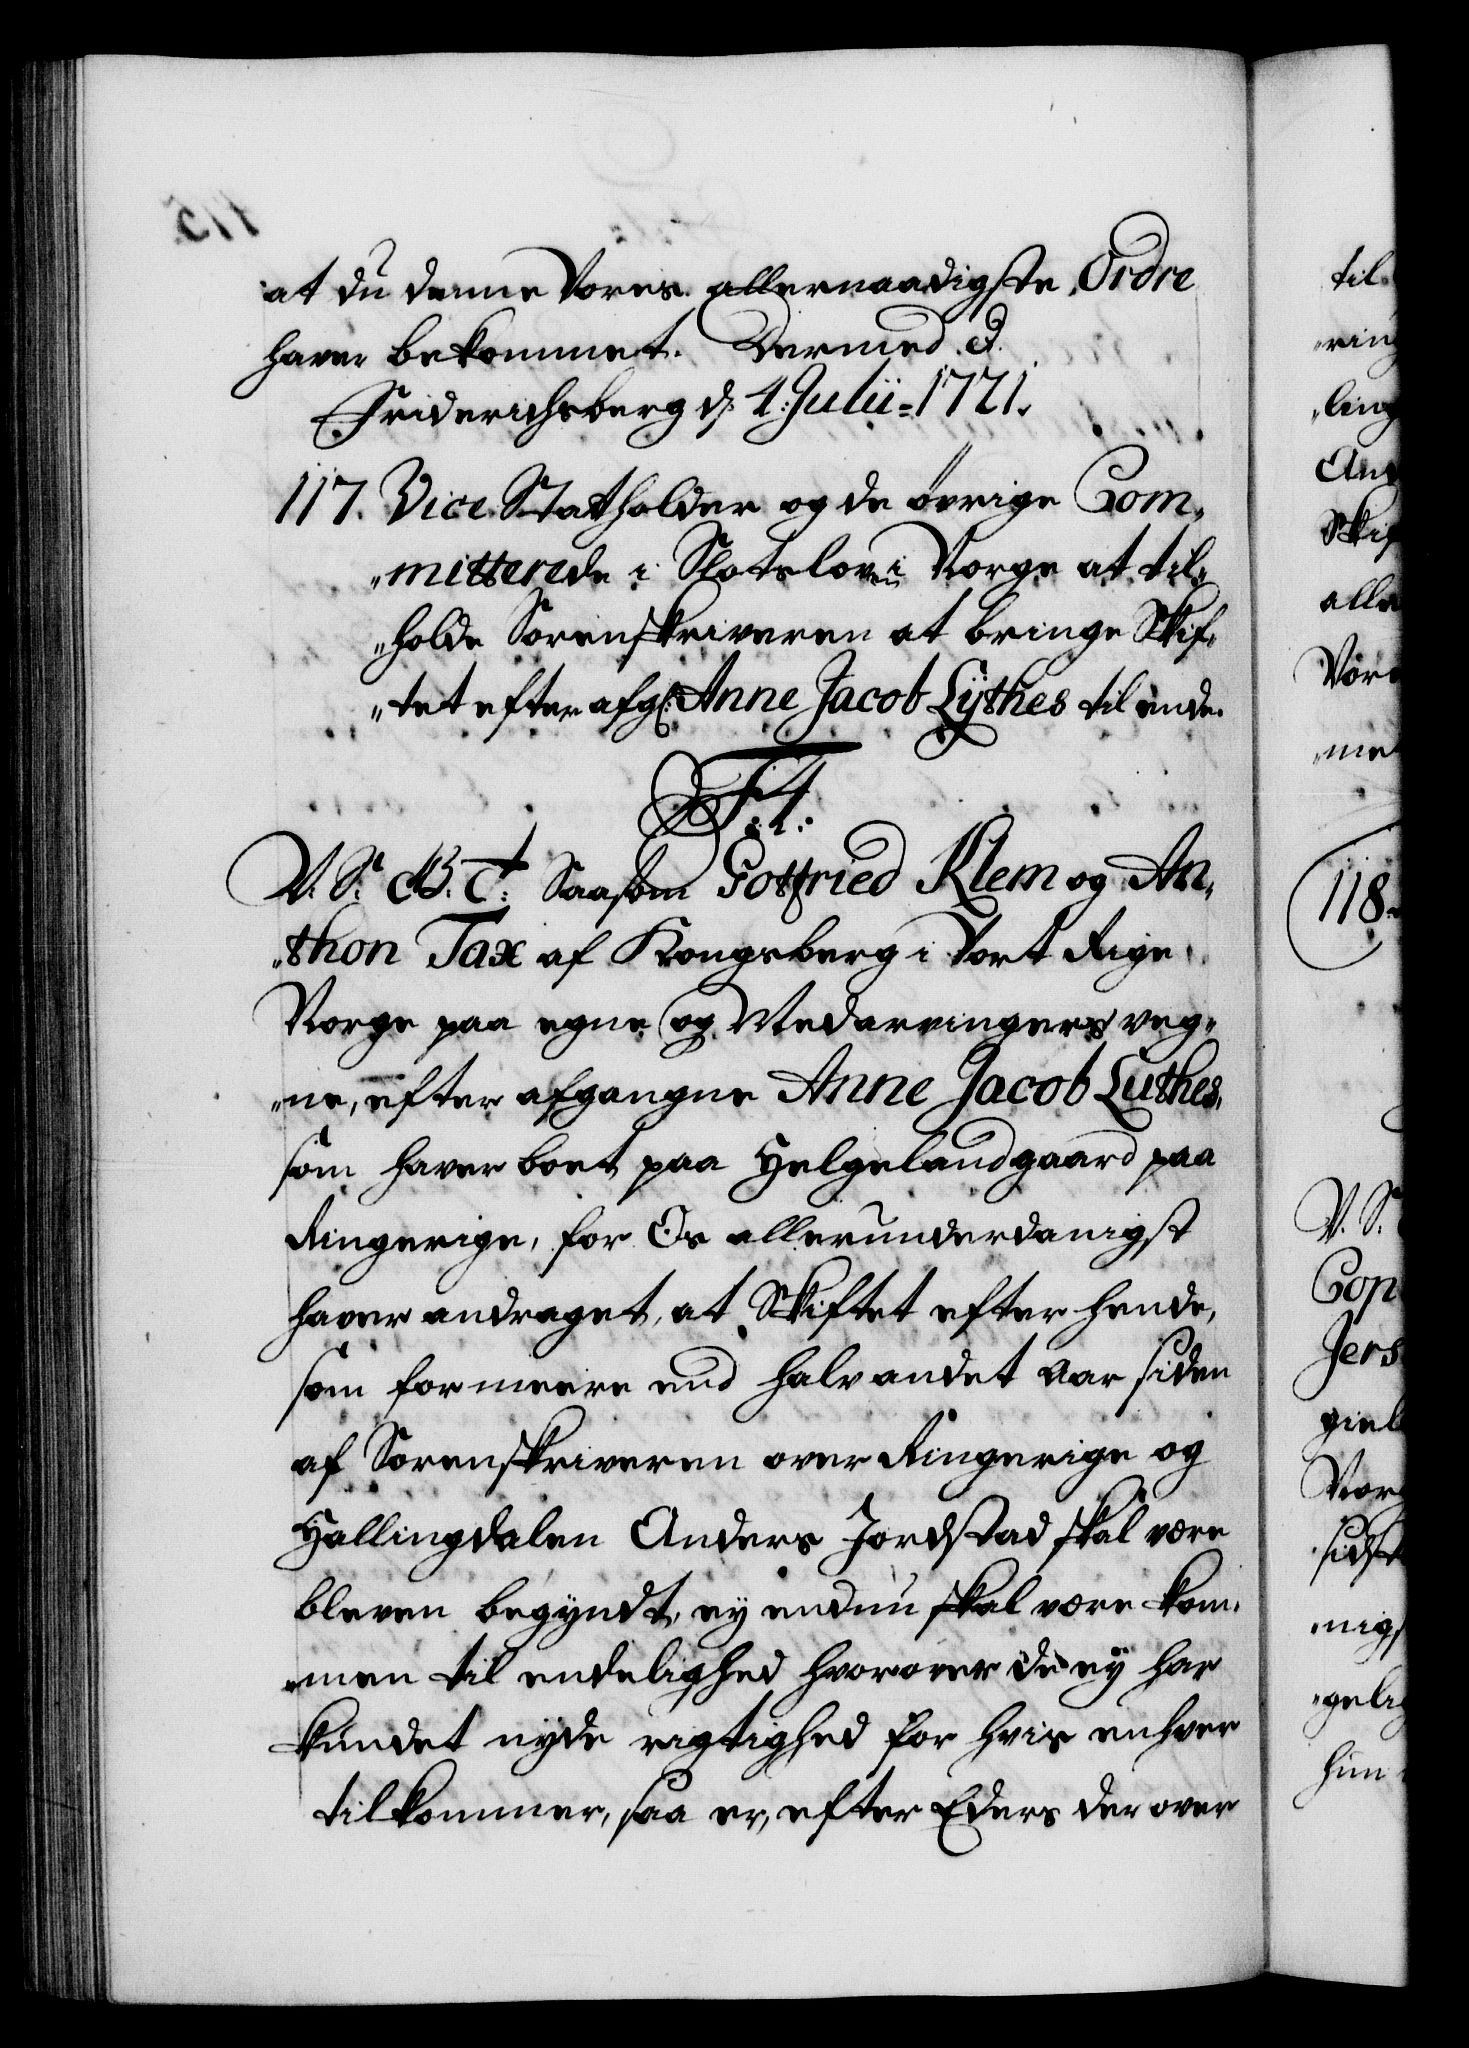 at du denne Vores allernaadigste Ordre
haver bekommet. Dermed &.
Friderichsberg d. 4. Julii = 1721.
117. Vice Statholder og de övrige Com„
„mitterede i Slotsloven i Norge at til„
„holde Sorenskriveren at bringe Skif„
„tet efter afg: Anne Jacob Lÿthes til ende.
F. 4.
V. S. G. B. T. Saasom Gotfried Klem og An„
„thon Tax af Kongsberg i Vort Rige
Norge paa egne og Medarvingers veg„
„ne, efter afgangne Anne Jacob Luthes,
som haver boet paa Helgelandgaard paa
Ringerige, for Os allerunderdanigst
haver andraget, at Skiftet efter hende,
som for meere end halvandet Aar siden
af Sorenskriveren over Ringerige og
Hallingdalen Anders Jordstad skal være
bleven begyndt, ey endnu skal være kom„
„men til endelighed hvorover de eÿ har
kundet nyde rigtighed for hvis enhver
tilkommer, saa er, efter Eders derover
118.